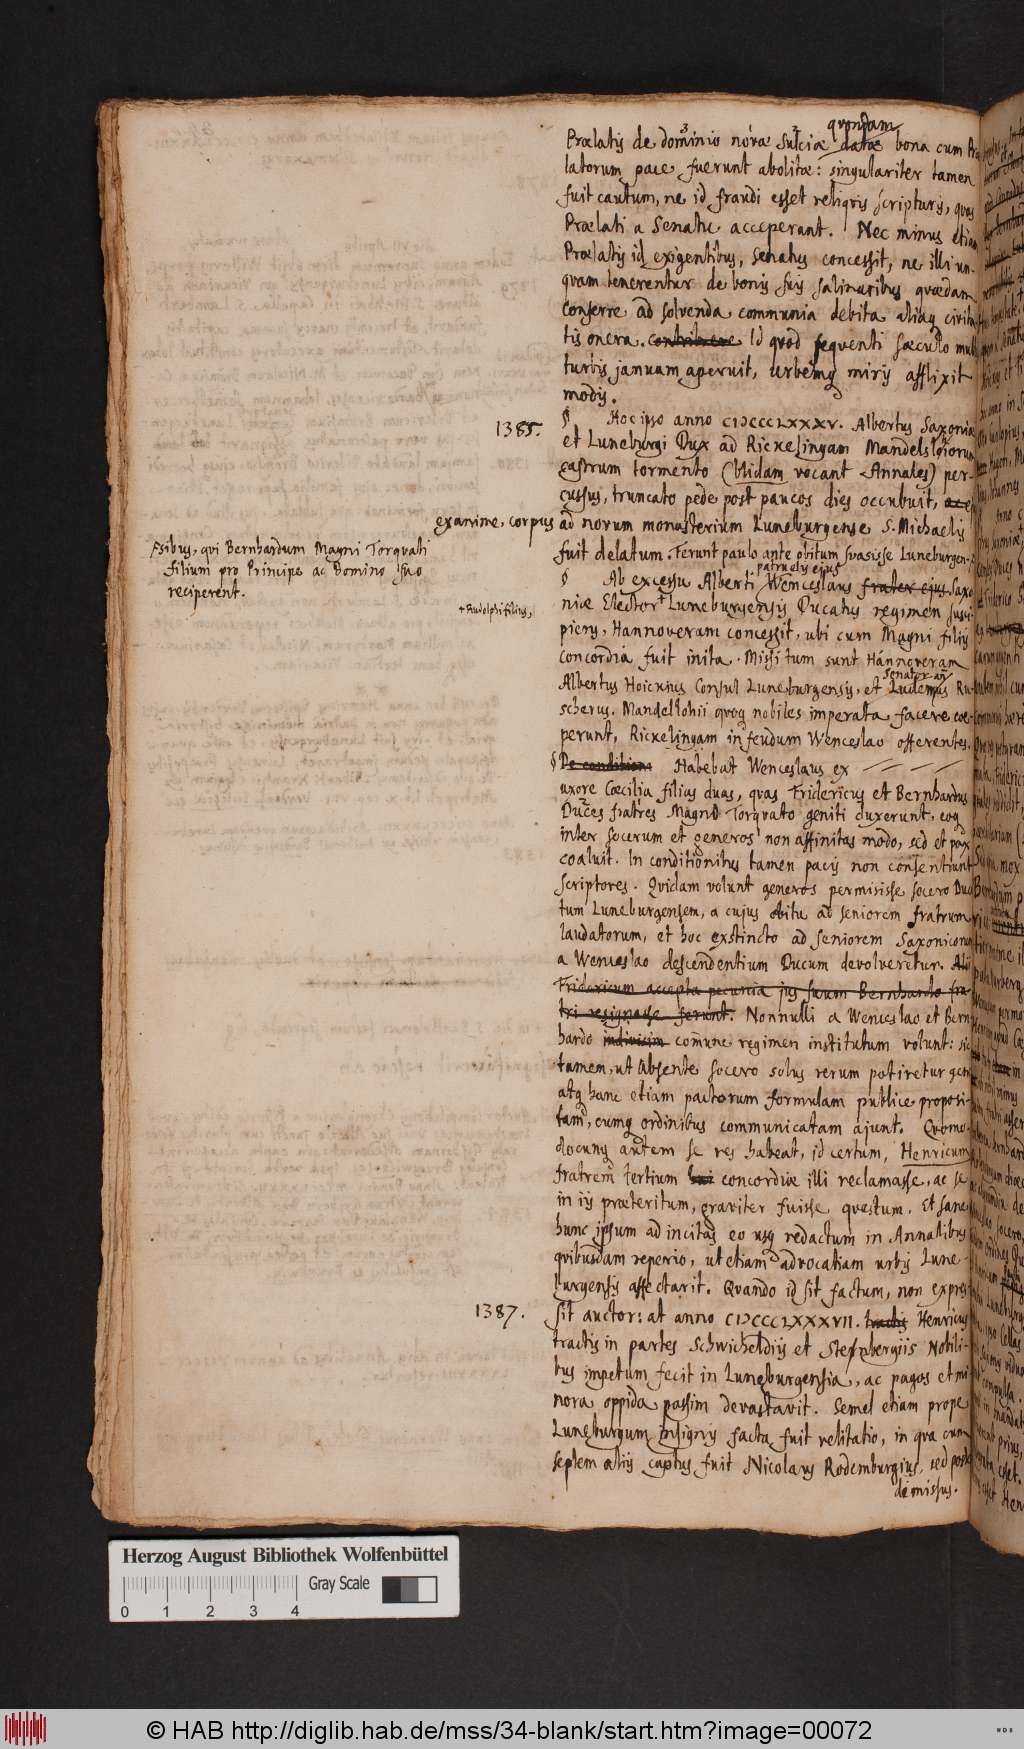 quondam
Prælatis de dominio novæ Sulciæ datæ bona cum Præ
latorum pace fuerunt abolitæ: singulariter tamen
fuit cautum, ne id fraudi esset reliqvis scripturis, qvas
Prælati a Senatu acceperant. Nec minus etiam
Prælatis id exigentibus, Senatus concessit, ne illi un-
qvam tenerentur de bonis suis salinaribus qvædam
conferre ad solvenda communia debita aliaq civita
tis onera. contribuere Id qvod seqventi sæculo mul
turbis januam aperuit, urbemq miris afflixit
modis.
1385.
§ Hoc ipso anno CIↃCCCLXXXV. Albertus Saxoniæ
et Luneburgi Dux ad Rickelingam Mandelslojiorum
castrum tormento (Blidam vocant Annales) per-
cussus, truncato pede post paucos dies occubuit, ac e
exanime, corpus ad novum monasterium Luneburgense S. Michaelis
fuit delatum. Ferunt paulo ante obitum svasisse Luneburgen-
Fsibus, qvi Bernhardum Magni Torqvati
filium pro Principe ac Domino suo
reciperent.
patruelis ejus
§ Ab excessu Alberti Wenceslaus frater ejus Saxo
niæ Elector + Luneburgensis Ducatus regimen susci-
+ Rudolphi filius,
piens, Hannoveram concessit, ubi cum Magni filiis
concordia fuit inita. Missi tum sunt Hannoveram
Senator
Albertus Hoickius Consul Luneburgensis, et Ludemus Ru-
scherus. Mandelslohii qvoq nobiles imperata facere coe-
perunt, Rickelingam in feudum Wenceslao offerentes.
§ De conditioni Habebat Wenceslaus ex
uxore Cœcilia filias duas, qvas Fridericus et Bernhardus
Duces fratres Magno Torqvato geniti duxerunt, eoq
inter socerum et generos non affinitas modo, sed et pax
coaluit. In conditionibus tamen pacis non consentiunt
scriptores. Qvidam volunt generos permisisse socero Duca
tum Luneburgensem, a cujus obitu ad seniorem fratrum
laudatorum, et hoc exstincto ad seniorem Saxonicorum
a Wenceslao descendentium Ducum devolveretur. Alii
Fridericum accepta pecunia jus suum Bernhardo fra
tri resignasse ferunt. Nonnulli a Wenceslao et Bern
hardo indivisim com̃une regimen institutum volunt: sic
tamen, ut absente socero solus rerum potiretur gener
atq hanc etiam pactorum formulam publice proposi-
tam, cumq ordinibus communicatam ajunt. Qvomo-
docunq autem se res habeat, id certum, Henricum
fratrem tertium concordiæ illi reclamasse, ac se
in iis præteritum, graviter fuisse qvestum. Et sane
hunc ipsum ad incitas eo usq redactum in Annalibus
qvibusdam reperio, ut etiam advocatiam urbis Lune-
burgensis affectarit. Qvando id sit factum, non expres
1387.
sit auctor: at anno CIↃCCCLXXXVII. tractis Henricus
tractis in partes Schwicheldiis et Stejnbergiis Nobili-
bus impetum fecit in Luneburgensia, ac pagos et mi
nora oppida passim devastavit. Semel etiam prope
Luneburgum insignis facta fuit velitatio, in qva cum
septem aliis captus fuit Nicolaus Rodemburgius, sed postea
dimissus.
Herzog August Bibliothek Wolfenbüttel
Gray Scale
0 1 2 3 4
© HAB http://diglib.hab.de/mss/34-blank/start.htm?image=00072